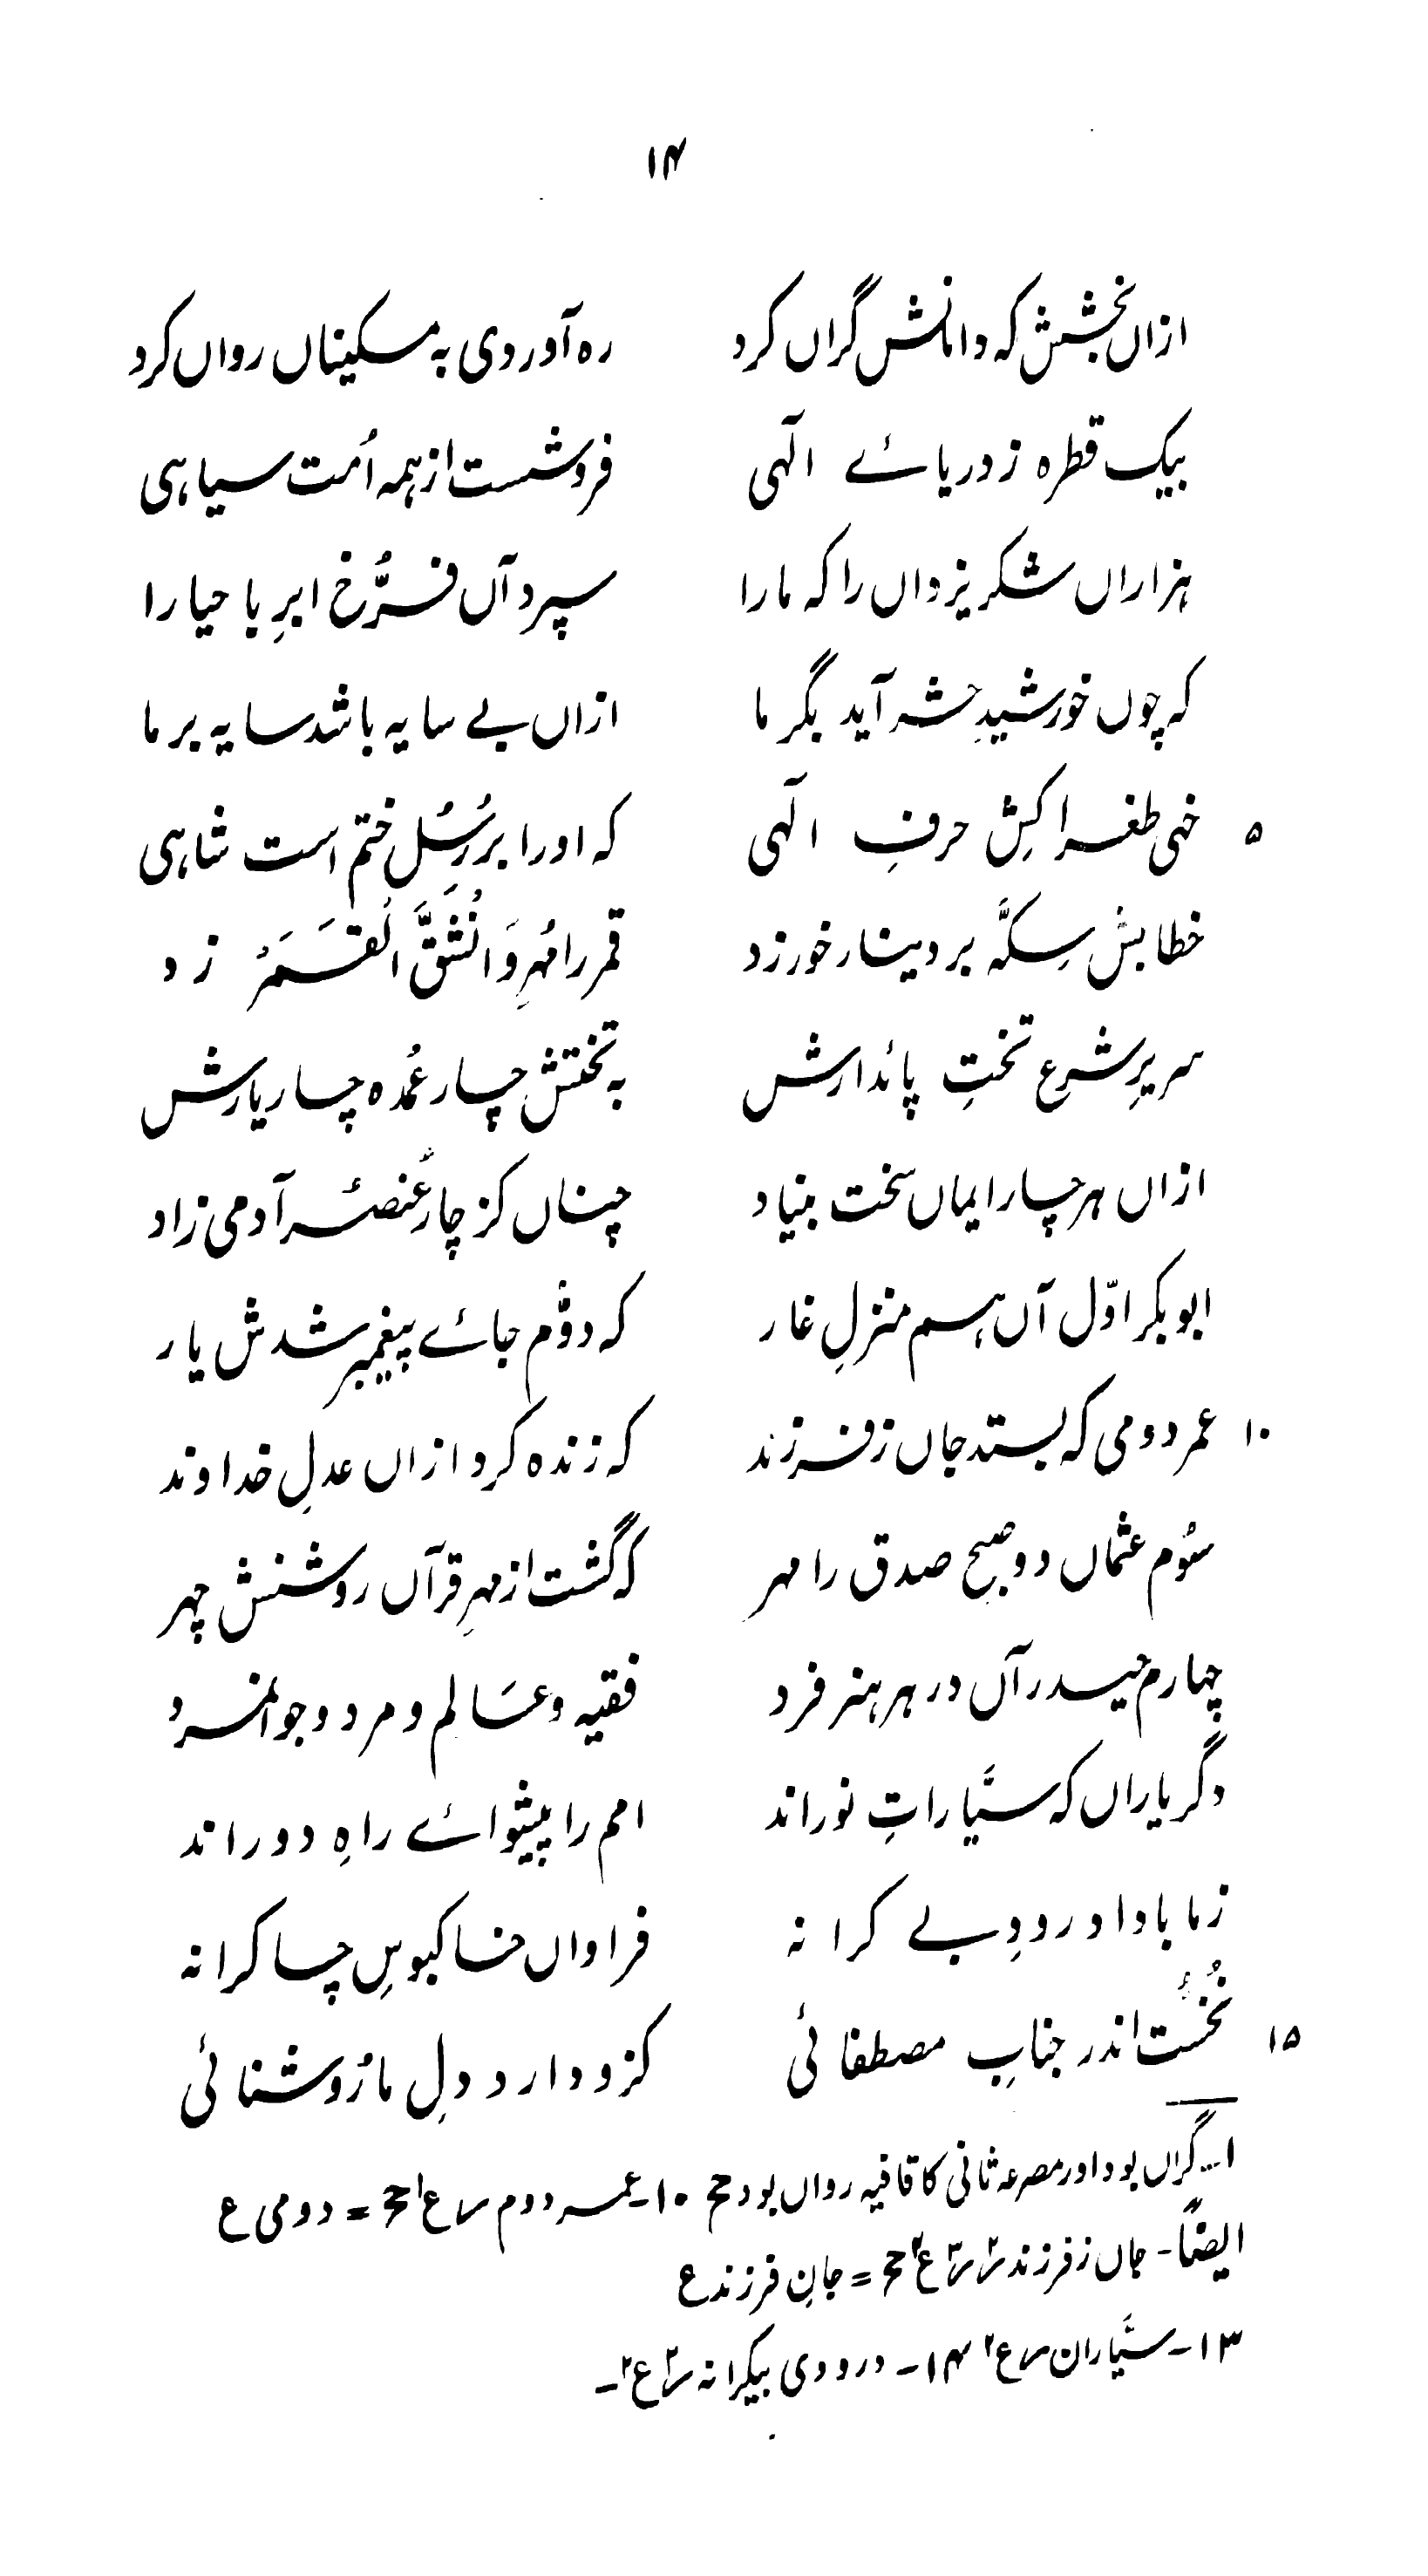 ۱۴
ازاں بخشش که دامانش گراں کرد ره آوردی به مسکیناں رواں کرد
بیک قطره ز دریائے الٰہی فروشست از ہمه اُمت سیاہی
ہزاراں شکر یزداں را که ما را سپرد آں فرُّخ ابرِ با حیا را
که چوں خورشیدِ حشر آید بگر ما ازاں بے سایه باشد سایه بر ما
۵ خہی طغرا کِش حرفِ الٰہی که او را بر رُسُل ختم است شاہی
خطابش سِکّه بر دینار خور زد قمر را مُہرِ وَانْشَقَّ الْقَمَرُ زد
سریرِ شرع تختِ پائدارش به تختش چار عُمده چار یارش
ازاں ہر چار ایماں سخت بنیاد چناں کز چار عُنصر آدمی زاد
ابوبکر اوّل آں ہم منزلِ غار که دوُّم جائے پیغمبر شدش یار
۱۰ عمر دومی که بستد جاں ز فرزند که زنده کرد ازاں عدلِ خداوند
سوُم عثماں دو صبح صدق را مہر که گشت از مہرِ قرآں روشنش چہر
چہارم حیدر آں در ہر ہنر فرد فقیه و عَالم و مرد و جوانمرد
دگر یاراں که سیَّاراتِ نور اند امم را پیشوائے راهِ دور اند
ز ما بادا درودِ بے کرانه فراواں خاکبوسِ چاکرانه
۱۵ نُخُست اندر جنابِ مصطفائی کزو دارد دلِ ما رُوشنائی
۱۔ گراں بود اور مصرعه ثانی کا قافیه رواں بود ح ۱۰۔ عمر دوم س ع۱ ح = دومی ع
ایضاً۔ جاں ز فرزند س۲ س۳ ع۲ ح = جانِ فرزند ع
۱۳۔ سیَّاران س ع۲ ۱۴۔ درودی بیکرانه س۲ ع۲۔